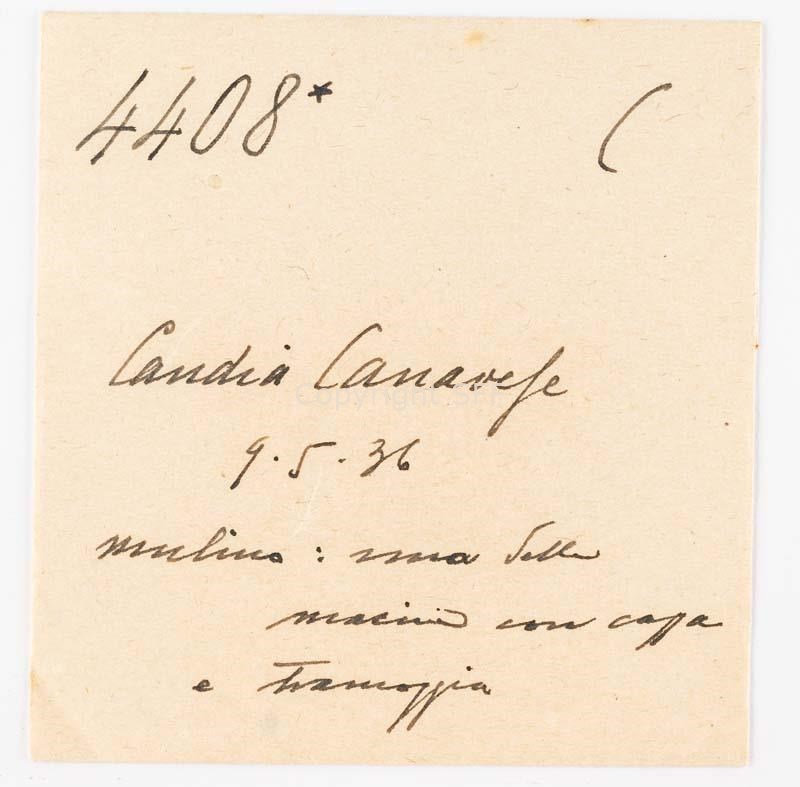 4408* (
Candia Canavese
9.5.36
mulino: una delle
macine con cassa
e tramoggia